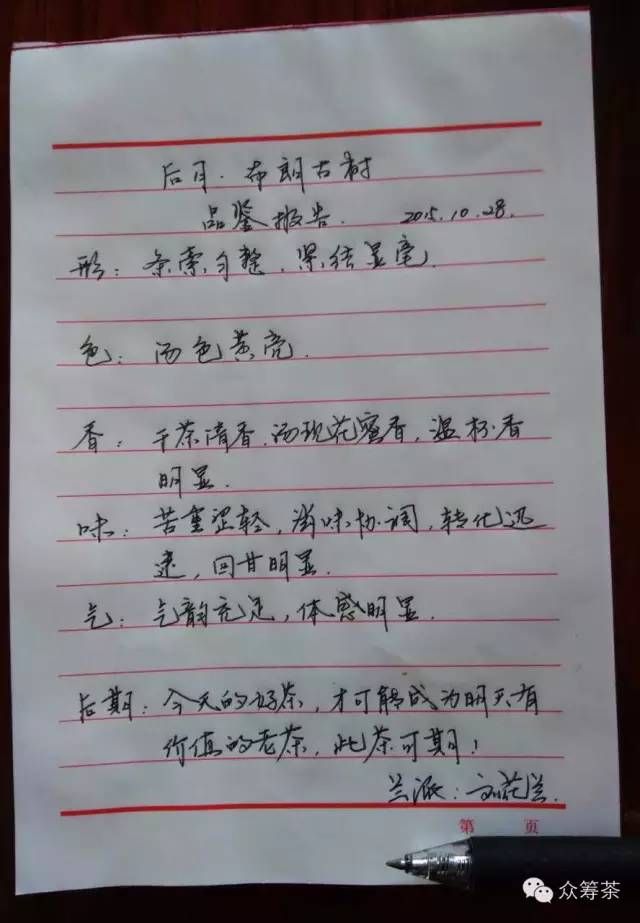 后月·布朗古树
品鉴报告. 2015.10.28.
形：条索匀整，紧结显毫.
色：汤色黄亮.
香：干茶清香.汤现花蜜香，温杯香
明显.
味：苦重涩轻，滋味协调，转化迅
速，回甘明显.
气：气韵充足，体感明显.
后期：今天的好茶，才可能成为明天有
价值的老茶，此茶可期！
兰派：文花兰.
第 页
众筹茶